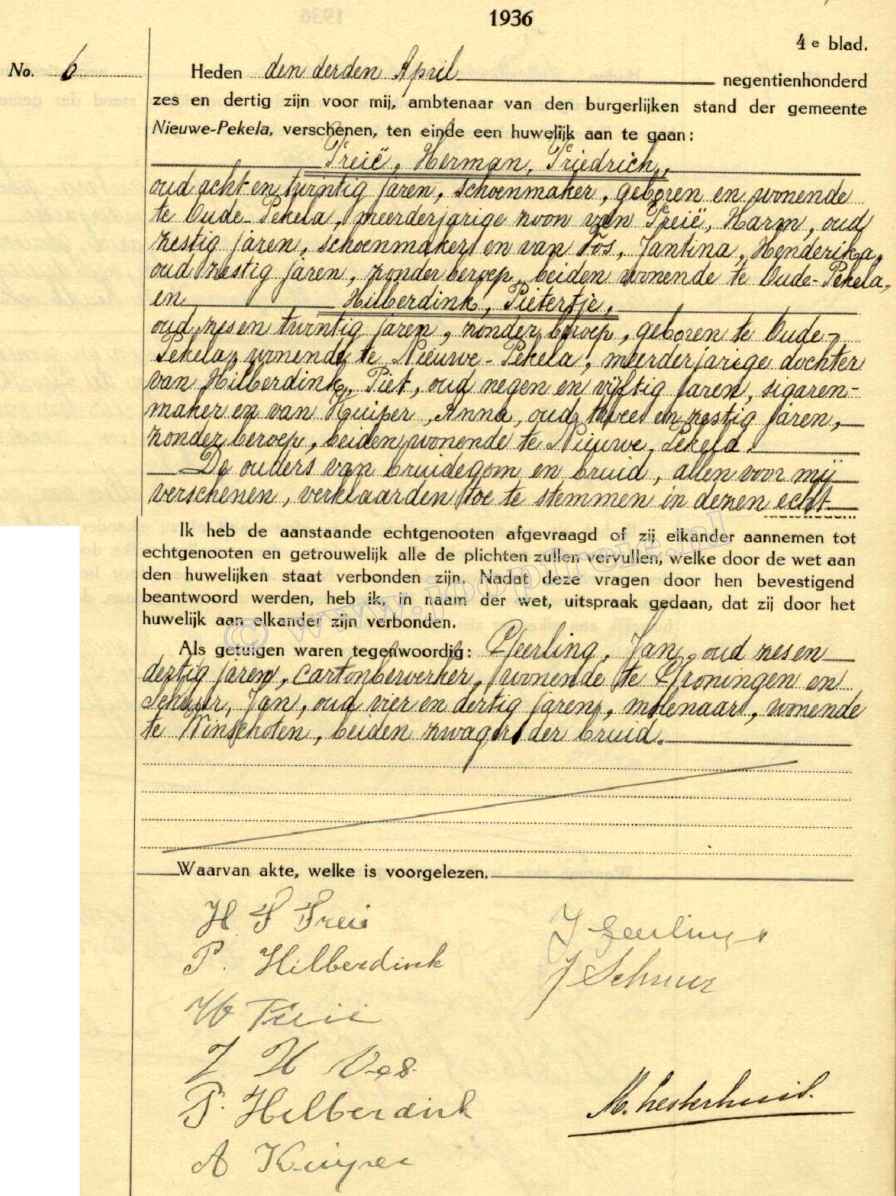 1936
4e blad.
No. 6
Heden den derden April negentienhonderd
zes en dertig zijn voor mij, ambtenaar van den burgerlijken stand der gemeente
Nieuwe-Pekela, verschenen, ten einde een huwelijk aan te gaan:
Freië, Herman, Friedrich,
oud acht en twintig jaren, schoenmaker, geboren en wonende
te Oude-Pekela, meerderjarige zoon van Freië, Harm, oud
zestig jaren, schoenmaker en van Vos, Jantina, Henderika,
oud zestig jaren, zonder beroep, beiden wonende te Oude-Pekela,
en Hilberdink, Pietertje,
oud zes en twintig jaren, zonder beroep, geboren te Oude-
Pekela, wonende te Nieuwe-Pekela, meerderjarige dochter
van Hilberdink, Piet, oud negen en vijftig jaren, sigaren-
maker en van Kuiper, Anna, oud twee en zestig jaren,
zonder beroep, beiden wonende te Nieuwe Pekela.
De ouders van bruidegom en bruid, allen voor mij
verschenen, verklaarden toe te stemmen in dezen echt
Ik heb de aanstaande echtgenooten afgevraagd of zij elkander aannemen tot
echtgenooten en getrouwelijk alle de plichten zullen vervullen, welke door de wet aan
den huwelijken staat verbonden zijn. Nadat deze vragen door hen bevestigend
beantwoord werden, heb ik, in naam der wet, uitspraak gedaan, dat zij door het
huwelijk aan elkander zijn verbonden.
Als getuigen waren tegenwoordig: Geerling, Jan, oud zes en
dertig jaren, cartonbewerker, wonende te Groningen en
Schuur, Jan, oud vier en dertig jaren, molenaar, wonende
te Winschoten, beiden zwager der bruid.
Waarvan akte, welke is voorgelezen.
H F Freië
J Geerlings
P. Hilberdink
J Schuur
H Freië
J H Vos
P. Hilberdink
A Kuiper